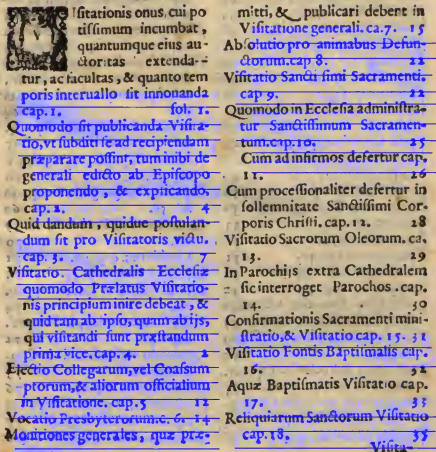 Visitationis onus, cui po
tissimum incumbat,
quantumque eius au-
ctoritas extenda-
tur, ac facultas, & quanto tem
poris interuallo sit innouanda
cap. 1. fol. 1.
Quomodo sit publicanda Visita-
tio, vt subditi se ad recipiendam
præparare possint, tum inibi de
generali edicto ab Episcopo
proponendo, & explicando.
cap. 2. 4
Quid dandum, quidue postulan-
dum sit pro Visitatoris victu.
cap. 3. 7
Visitatio Cathedralis Ecclesiæ
quomodo Prælatus Visitatio-
nis principium inire debeat, &
quid tam ab ipso, quam ab ijs,
qui visitandi sunt præstandum
prima vice. cap. 4. 2
Electio Collegarum, vel Coassum
ptorum, & aliorum officialium
in Visitatione. cap. 5 12
Vocatio Presbyterorum. c. 6. 14
Monitiones generales, quæ præ-
mitti, & publicari debent in
Visitatione generali. ca. 7. 15
Absolutio pro animabus Defun-
ctorum. cap 8. 22
Visitatio Sancti simi Sacramenti.
cap 9. 22
Quomodo in Ecclesia administra-
tur Sanctissimum Sacramen-
tum. cap. 10. 25
Cum ad infirmos defertur cap.
11. 26
Cum processionaliter defertur in
sollemnitate Sanctissimi Cor-
poris Christi. cap. 12. 28
Visitatio Sacrorum Oleorum. ca.
13. 29
In Parochijs extra Cathedralem
sic interroget Parochos. cap.
14. 30
Confirmationis Sacramenti mini-
stratio, & Visitatio cap. 15. 31
Visitatio Fontis Baptismalis cap.
16. 32
Aquæ Baptismatis Visitatio cap.
17. 33
Reliquiarum Sanctorum Visitatio
cap. 18. 35
Visita-